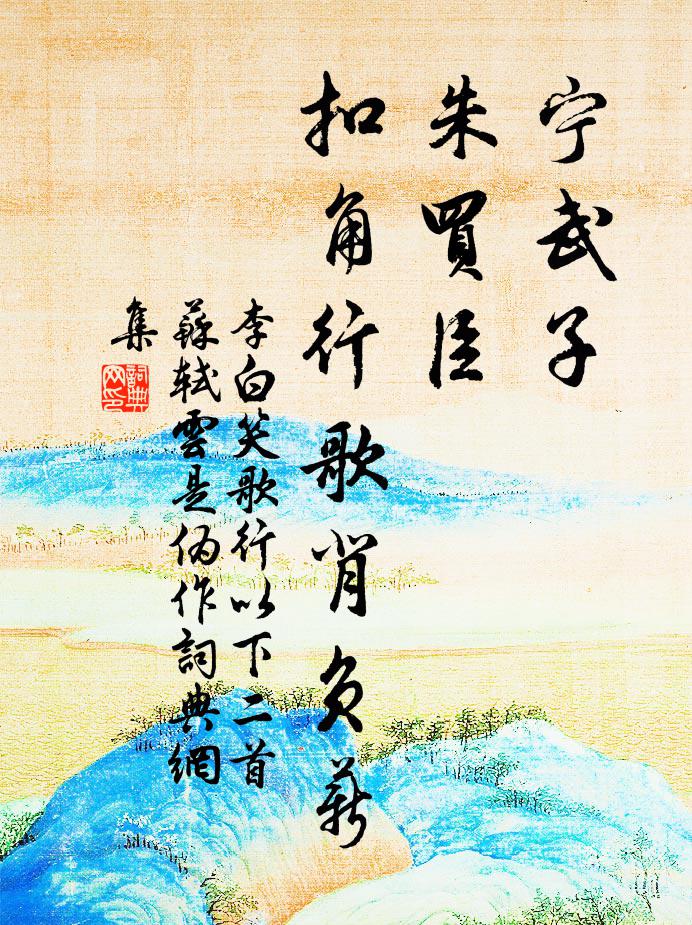 宁武子
朱買臣
扣角行歌背負薪
李白笑歌行以下二首
蘇軾雲是偽作詞典網
集
詞典
网印